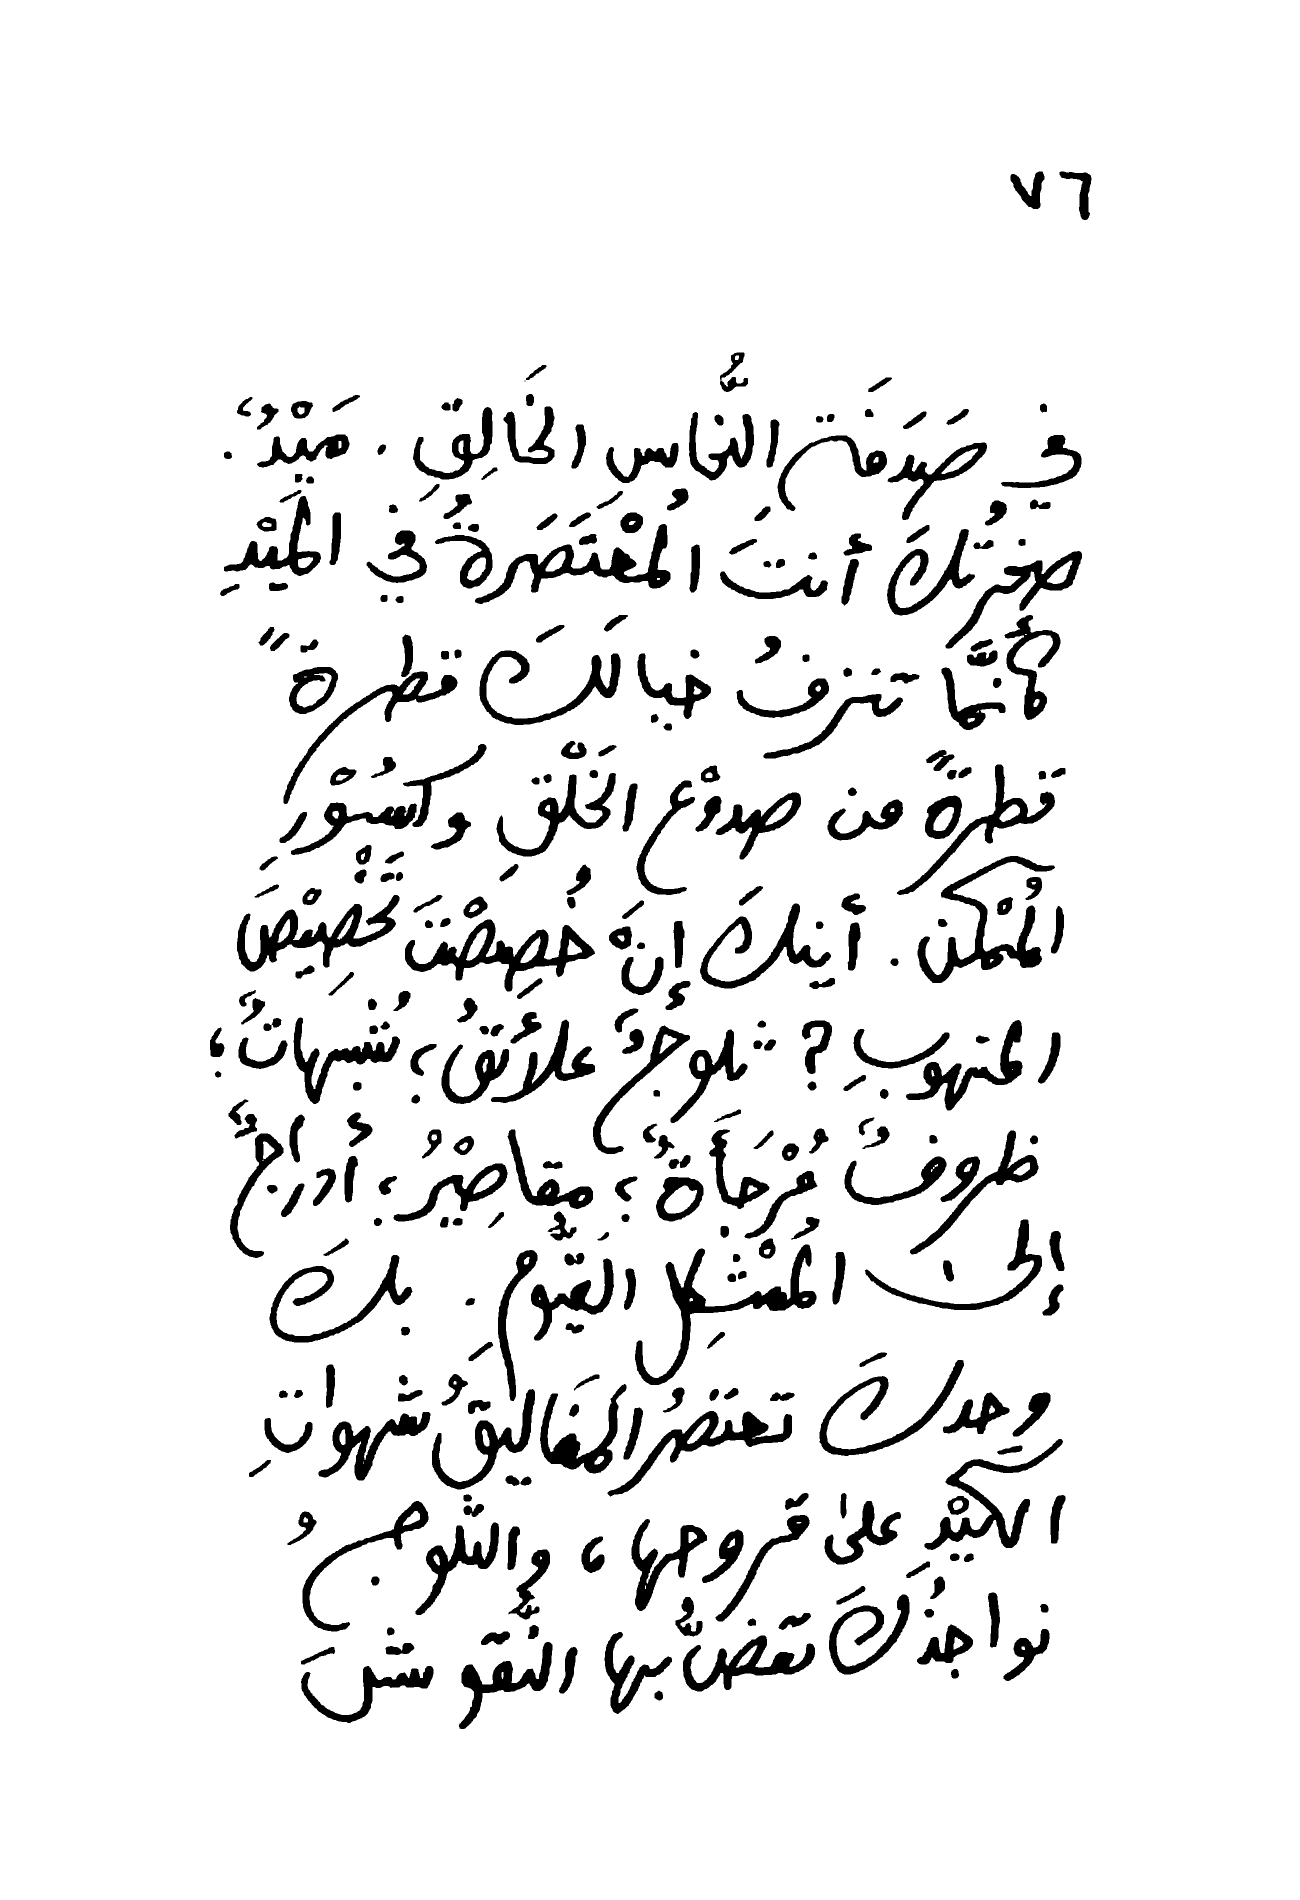 ٧٦
في صَدَفَة النُّحاسِ الخَالِقِ. مَيْدٌ.
صخرتُكَ أنتَ المُعْتَصَرةُ في المَيْدِ
كأنَّما تنزفُ خيالَكَ قطرةً
قطرةً من صدوْعِ الخَلْقِ وكسُوْرِ
المُمْكنِ. أينكَ إنْهَ خُصِصْتَ تَخْصِيْصَ
المنهوبِ؟ ثلوجٌ علائقُ؛ شُبهاتٌ؛
ظروفٌ مُرْجَأَةٌ؛ مقاصِيْرُ؛ أدراجٌ
إلى المُعْشِكلِ القَيُّوم. بكَ
وحدكَ تعتصرُ المَغَاليقُ شَهواتِ
الكَيْدِ على قروحها، والثلوجُ
نواجذُكَ تعَضُّ بها النُّقوشَ